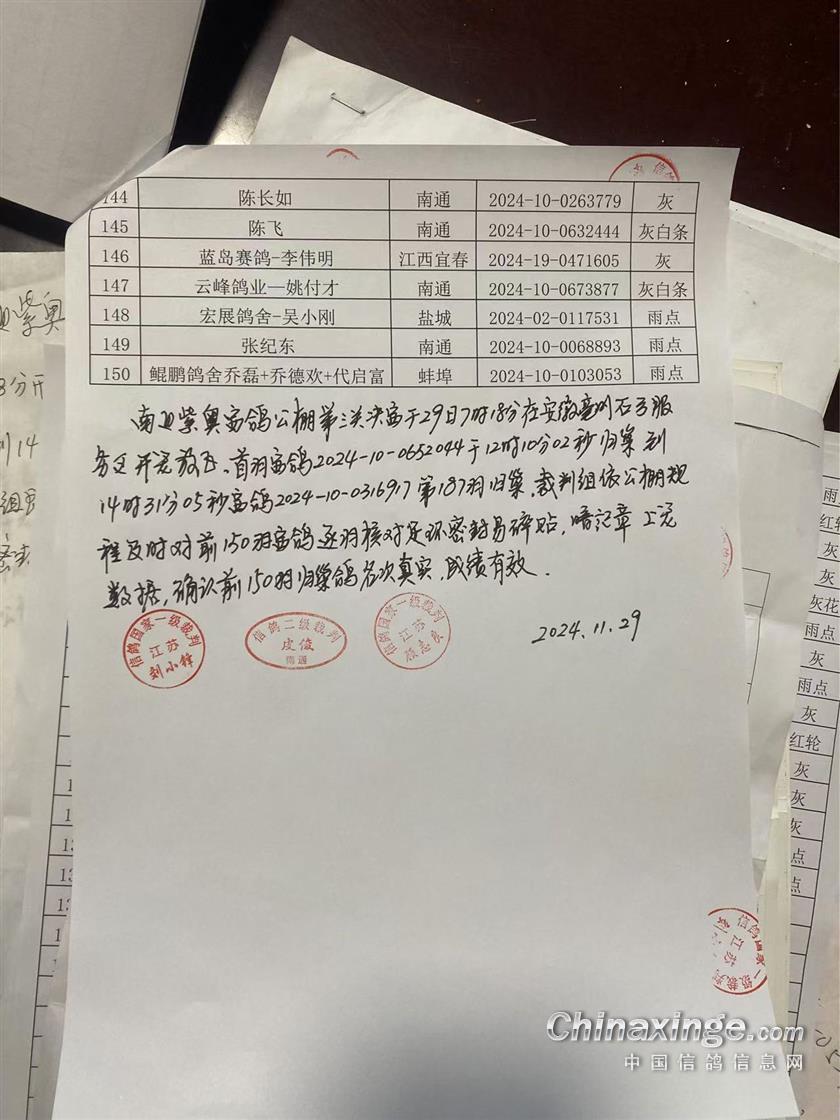 144 陈长如 南通 2024-10-0263779 灰
145 陈飞 南通 2024-10-0632444 灰白条
146 蓝岛赛鸽-李伟明 江西宜春 2024-19-0471605 灰
147 云峰鸽业—姚付才 南通 2024-10-0673877 灰白条
148 宏展鸽舍-吴小刚 盐城 2024-02-0117531 雨点
149 张纪东 南通 2024-10-0068893 雨点
150 鲲鹏鸽舍乔磊+乔德欢+代启富 蚌埠 2024-10-0103053 雨点
南通紫奥赛鸽公棚第三关决赛于29日7时18分在安徽亳州石弓服
务区开笼放飞,首羽赛鸽2024-10-0652044于12时10分02秒归巢到
14时31分05秒赛鸽2024-10-0316917第187羽归巢,裁判组依公棚规
程及时对前150羽赛鸽逐羽核对足环密封易碎贴,暗记章
数据,确认前150羽归巢鸽名次真实,成绩有效.
2024.11.29
信鸽国家一级裁判
江苏
信鸽二级裁判
皮俊
南通
信鸽国家一级裁判
江苏
紫奥
分开
14
雨点
灰
红轮
灰
灰
灰
点
点
灰花
雨点
信鸽国家一级裁判
江苏
Chinaxinge.com
中国信鸽信息网